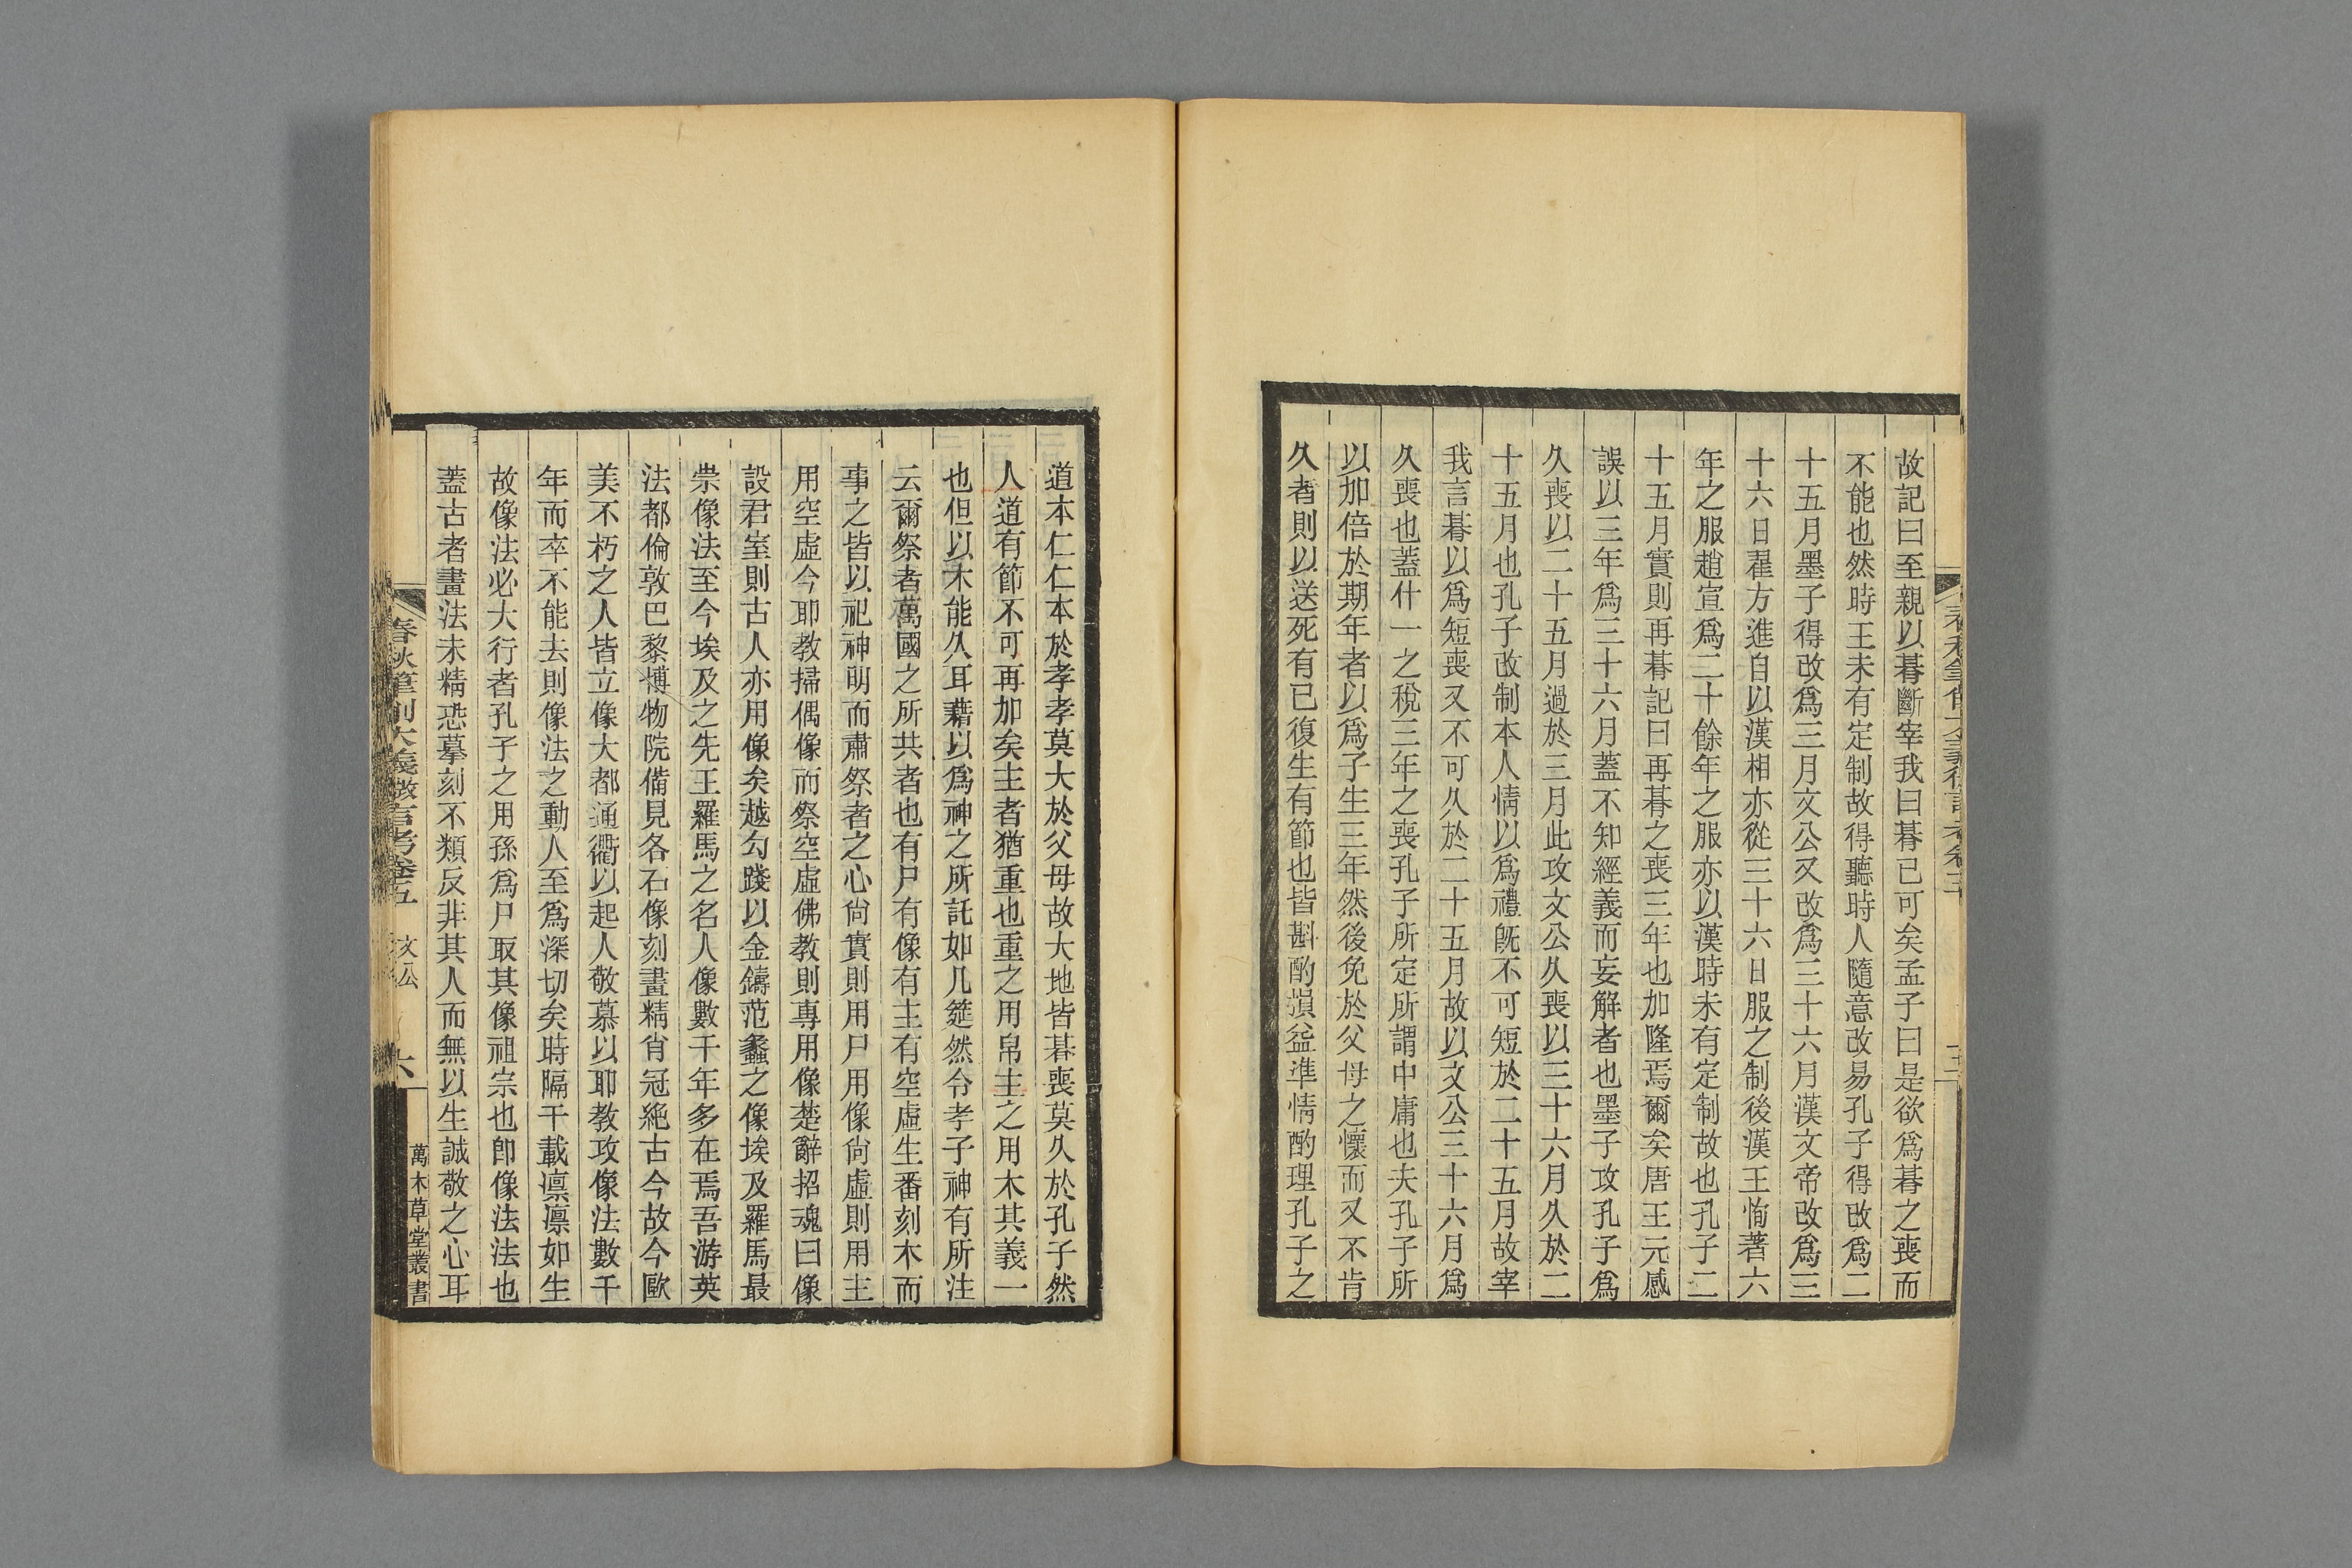 故記曰至親以朞斷宰我曰朞已可矣孟子曰是欲爲朞之喪而
不能也然時王未有定制故得聽時人隨意改易孔子得改爲二
十五月墨子得改爲三月文公又改爲三十六月漢文帝改爲三
十六日翟方進自以漢相亦從三十六日服之制後漢王恂著六
年之服趙宣爲二十餘年之服亦以漢時未有定制故也孔子二
十五月實則再朞記曰再朞之喪三年也加隆焉爾矣唐王元感
誤以三年爲三十六月蓋不知經義而妄解者也墨子攻孔子爲
久喪以二十五月過於三月此攻文公久喪以三十六月久於二
十五月也孔子改制本人情以爲禮旣不可短於二十五月故宰
我言朞以爲短喪又不可久於二十五月故以文公三十六月爲
久喪也蓋什一之稅三年之喪孔子所定所謂中庸也夫孔子所
以加倍於期年者以爲子生三年然後免於父母之懷而又不肯
久者則以送死有已復生有節也皆斟酌損益準情酌理孔子之
道本仁仁本於孝孝莫大於父母故大地皆朞喪莫久於孔子然
人道有節不可再加矣主者猶重也重之用帛主之用木其義一
也但以木能久耳藉以爲神之所託如几筵然令孝子神有所注
云爾祭者萬國之所共者也有尸有像有主有空虛生番刻木而
事之皆以祀神明而肅祭者之心尙實則用尸用像尙虛則用主
用空虛今耶教掃偶像而祭空虛佛教則專用像楚辭招魂曰像
設君室則古人亦用像矣越勾踐以金鑄范蠡之像埃及羅馬最
崇像法至今埃及之先王羅馬之名人像數千年多在焉吾游英
法都倫敦巴黎博物院備見各石像刻畫精肖冠絶古今故今歐
美不朽之人皆立像大都通衢以起人敬慕以耶教攻像法數千
年而卒不能去則像法之動人至爲深切矣時隔千載凛凛如生
故像法必大行者孔子之用孫爲尸取其像祖宗也卽像法法也
蓋古者畫法未精恐摹刻不類反非其人而無以生誠敬之心耳
春秋筆削大義微言考卷五 文公 六 萬木草堂叢書